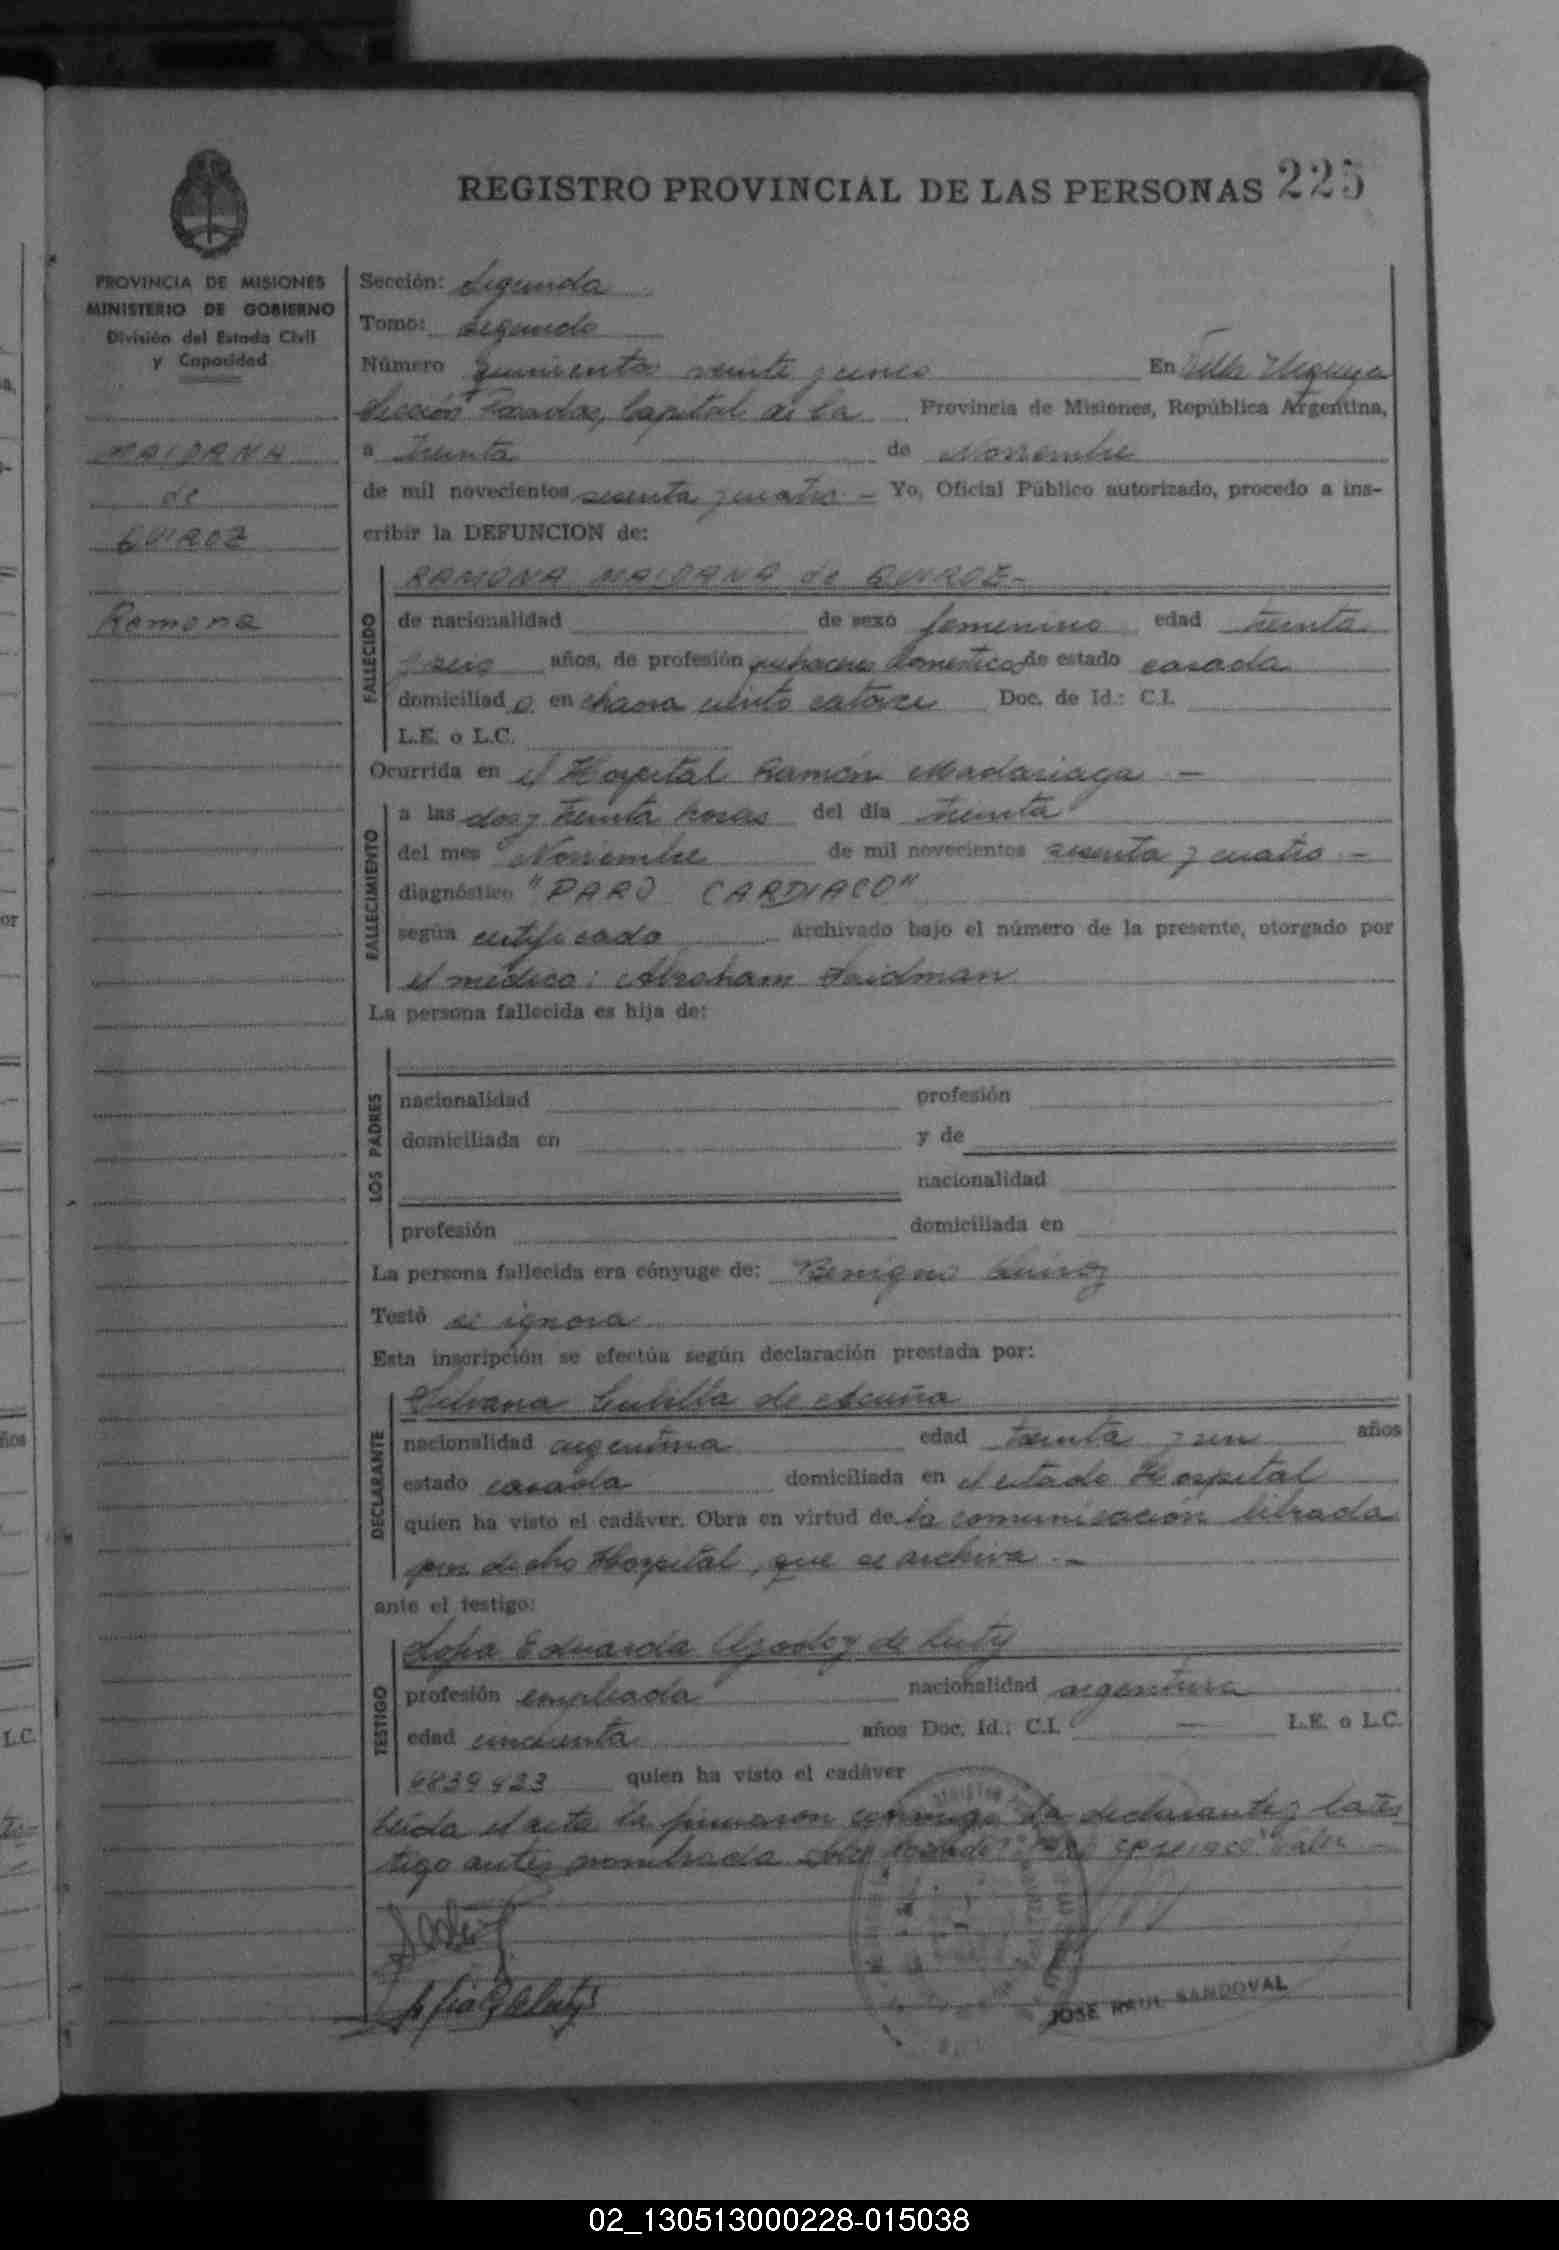 REGISTRO PROVINCIAL DE LAS PERSONAS 225
PROVINCIA DE MISIONES
MINISTERIO DE GOBIERNO
División del Estado Civil
y Capacidad
MAIDANA
de
QUIROZ
Ramona
Sección: Segunda
Tomo: Segundo
Número quinientos veinte y cinco En Villa Urquiza
Sección Posadas, Capital de la Provincia de Misiones, República Argentina,
a treinta de Noviembre
de mil novecientos sesenta y cuatro - Yo, Oficial Público autorizado, procedo a ins-
cribir la DEFUNCION de:
FALLECIDO
RAMONA MAIDANA de QUIROZ-
de nacionalidad de sexo femenino edad treinta
y seis años, de profesión quehaceres domésticos de estado casada
domiciliad a en chacra ciento catorce Doc. de Id.: C.I.
L.E. o L.C.
Ocurrida en el Hospital Ramón Madariaga -
FALLECIMIENTO
a las dos y treinta horas del día treinta
del mes Noviembre de mil novecientos sesenta y cuatro -
diagnóstico "PARO CARDIACO"
según certificado archivado bajo el número de la presente, otorgado por
el médico: Abraham
La persona fallecida es hija de:
LOS PADRES
nacionalidad profesión
domiciliada en y de
nacionalidad
profesión domiciliada en
La persona fallecida era cónyuge de: Benigno Quiroz
Testó se ignora
Esta inscripción se efectúa según declaración prestada por:
DECLARANTE
Silvana de Acuña
nacionalidad argentina edad treinta y un años
estado casada domiciliada en el citado Hospital
quien ha visto el cadáver. Obra en virtud de la comunicación librada
por dicho Hospital, que se archiva -
ante el testigo:
TESTIGO
Sofia Eduarda de
profesión empleada nacionalidad argentina
edad cincuenta años Doc. Id.: C.I. — L.E. o L.C.
6839423 quien ha visto el cadáver
Leída el acta la firmaron conmigo la declarante y la tes-
tigo antes nombrada
JOSE RAUL SANDOVAL
02_130513000228-015038